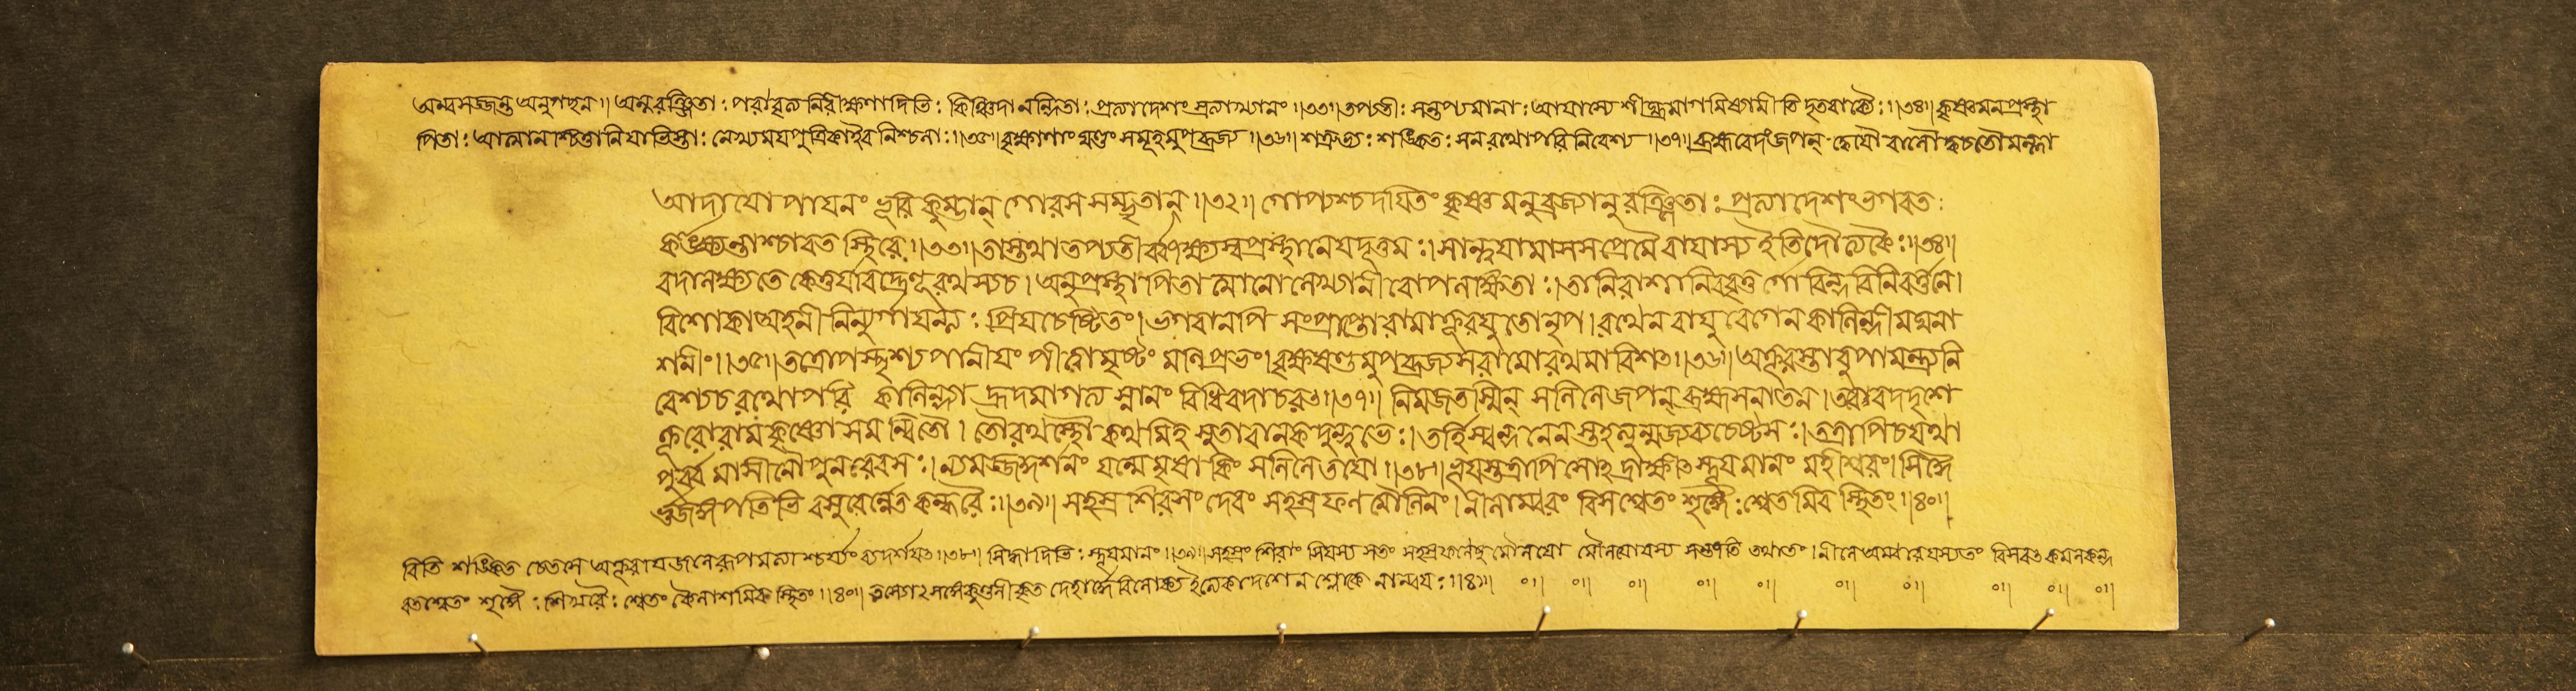 অন্বসজ্জন্ত অনুগছন॥ অনুরঞ্জিতাঃ পরাবৃত্য নিরীক্ষণাদিভিঃ কিঞ্চিদানন্দিতাঃ প্রত্যাদেশং প্রত্যাখ্যানং॥৩৩॥তপ্যতীঃ সন্তপ্যমানাঃ আযাস্যে শীঘ্রমাগমিষ্যামীতি দূতবাক্যৈঃ॥৩৪॥কৃষ্ণমনপ্রস্থা
পিতাঃ আত্মানশ্চিত্তানি যাভিস্তাঃ লেখ্যময়পুত্রিকাইব নিশ্চলাঃ॥৩৫॥বৃক্ষাণাং ষণ্ডং সমূহমুপব্রজ্য॥৩৬॥শত্রুভ্যঃ শঙ্কিতঃ সন রথোপরিনিবেশ্য॥৩৭॥ব্রহ্মবেদংজপন্
আদাযোপাযনং ভূরি কুম্ভান্ গোরসসম্ভৃতান্॥৩২॥ গোপ্যশ্চদযিতং কৃষ্ণমনুব্রজ্যানুরঞ্জিতাঃ প্রত্যাদেশংভগবতঃ
কাঙ্ক্ষন্ত্যশ্চাবতস্থিরে॥৩৩॥তাস্তথাতপ্যতীর্ব্বীক্ষ্যস্বপ্রস্থানেযদূত্তমঃ।সান্ত্বযামাসসপ্রেমৈরাযাস্যইতিদৌত্যকৈঃ॥৩৪॥
যাবদালক্ষ্যতে কেতুর্যাবদ্রেণূরথস্যচ। অনুপ্রস্থাপিতাত্মানোলেখ্যানীবোপলক্ষিতাঃ।তানিরাশানিববৃতুর্গোবিন্দবিনিবর্ত্তনে।
বিশোকাঅহনীনিন্যুর্গাযন্ত্যঃ প্রিযচেষ্টিতং।ভগবানপি সংপ্রাপ্তোরামাক্রূরযুতোনৃপ।রথেনবাযুবেগেনকালিন্দীমঘনা
শনীং॥৩৫॥তত্রোপস্পৃশ্যপানীযং পীত্বামৃষ্টং মণিপ্রভং।বৃক্ষষণ্ডমুপব্রজ্যসরামোরথমাবিশৎ॥৩৬॥অক্রূরস্তাবুপামন্ত্র্যনি
বেশ্যচরথোপরি কালিন্দ্যা হ্রদমাগত্য স্নানং বিধিবদাচরৎ॥৩৭॥ নিমজ্জতস্মিন্ সলিলেজপন্ব্রহ্মসনাতনং।তাবেবদদৃশে
ক্রূরোরামকৃষ্ণৌসমন্বিতৌ। তৌরথস্থৌকথমিহসুতাবানকদুন্দুভেঃ।তর্হিস্বিৎস্যন্দনেনস্তইত্যুন্মজ্জ্যব্যচেষ্টসঃ।তত্রাপিচযথা
পূর্ব্বমাসীনৌপুনরেবসঃ।ন্যমজ্জদ্দর্শনং যন্মেমৃষাকিং সলিলেতযোঃ॥৩৮॥ভূযস্তত্রাপিসোহদ্রাক্ষীৎস্তূযমানং মহীশ্বরং।সিদ্ধৈ
র্ভুজঙ্গপতিভিরসুরৈর্ন্নতকন্ধরৈঃ॥৩৯॥সহস্রশিরসং দেবং সহস্রফণমৌলিনং।নীলাম্বরং বিসশ্বেতং শৃঙ্গৈঃশ্বেতমিবস্থিতং॥৪০॥
বিতি শঙ্কিতচেতসে অক্রূরায়জলেরূপমত্যাশ্চর্য্যং ব্যদর্শযৎ॥৩৮॥ সিদ্ধাদিভিঃ স্তূযমানং॥৩৯॥সহস্রং শিরাংসিযস্য সতং নীলে অম্বরেযস্যতং বিসবৎকমলকন্দ
বৎশ্বেতং শৃঙ্গৈঃ শিখরৈঃ শ্বেতং কৈলাশমিবস্থিতং॥৪০॥ বিলোক্যইত্যেকাদশেন শ্লোকেনান্বযঃ॥৪১॥ ০॥ ০॥ ০॥ ০॥ ০॥ ০॥ ০॥ ০॥ ০॥ ০॥